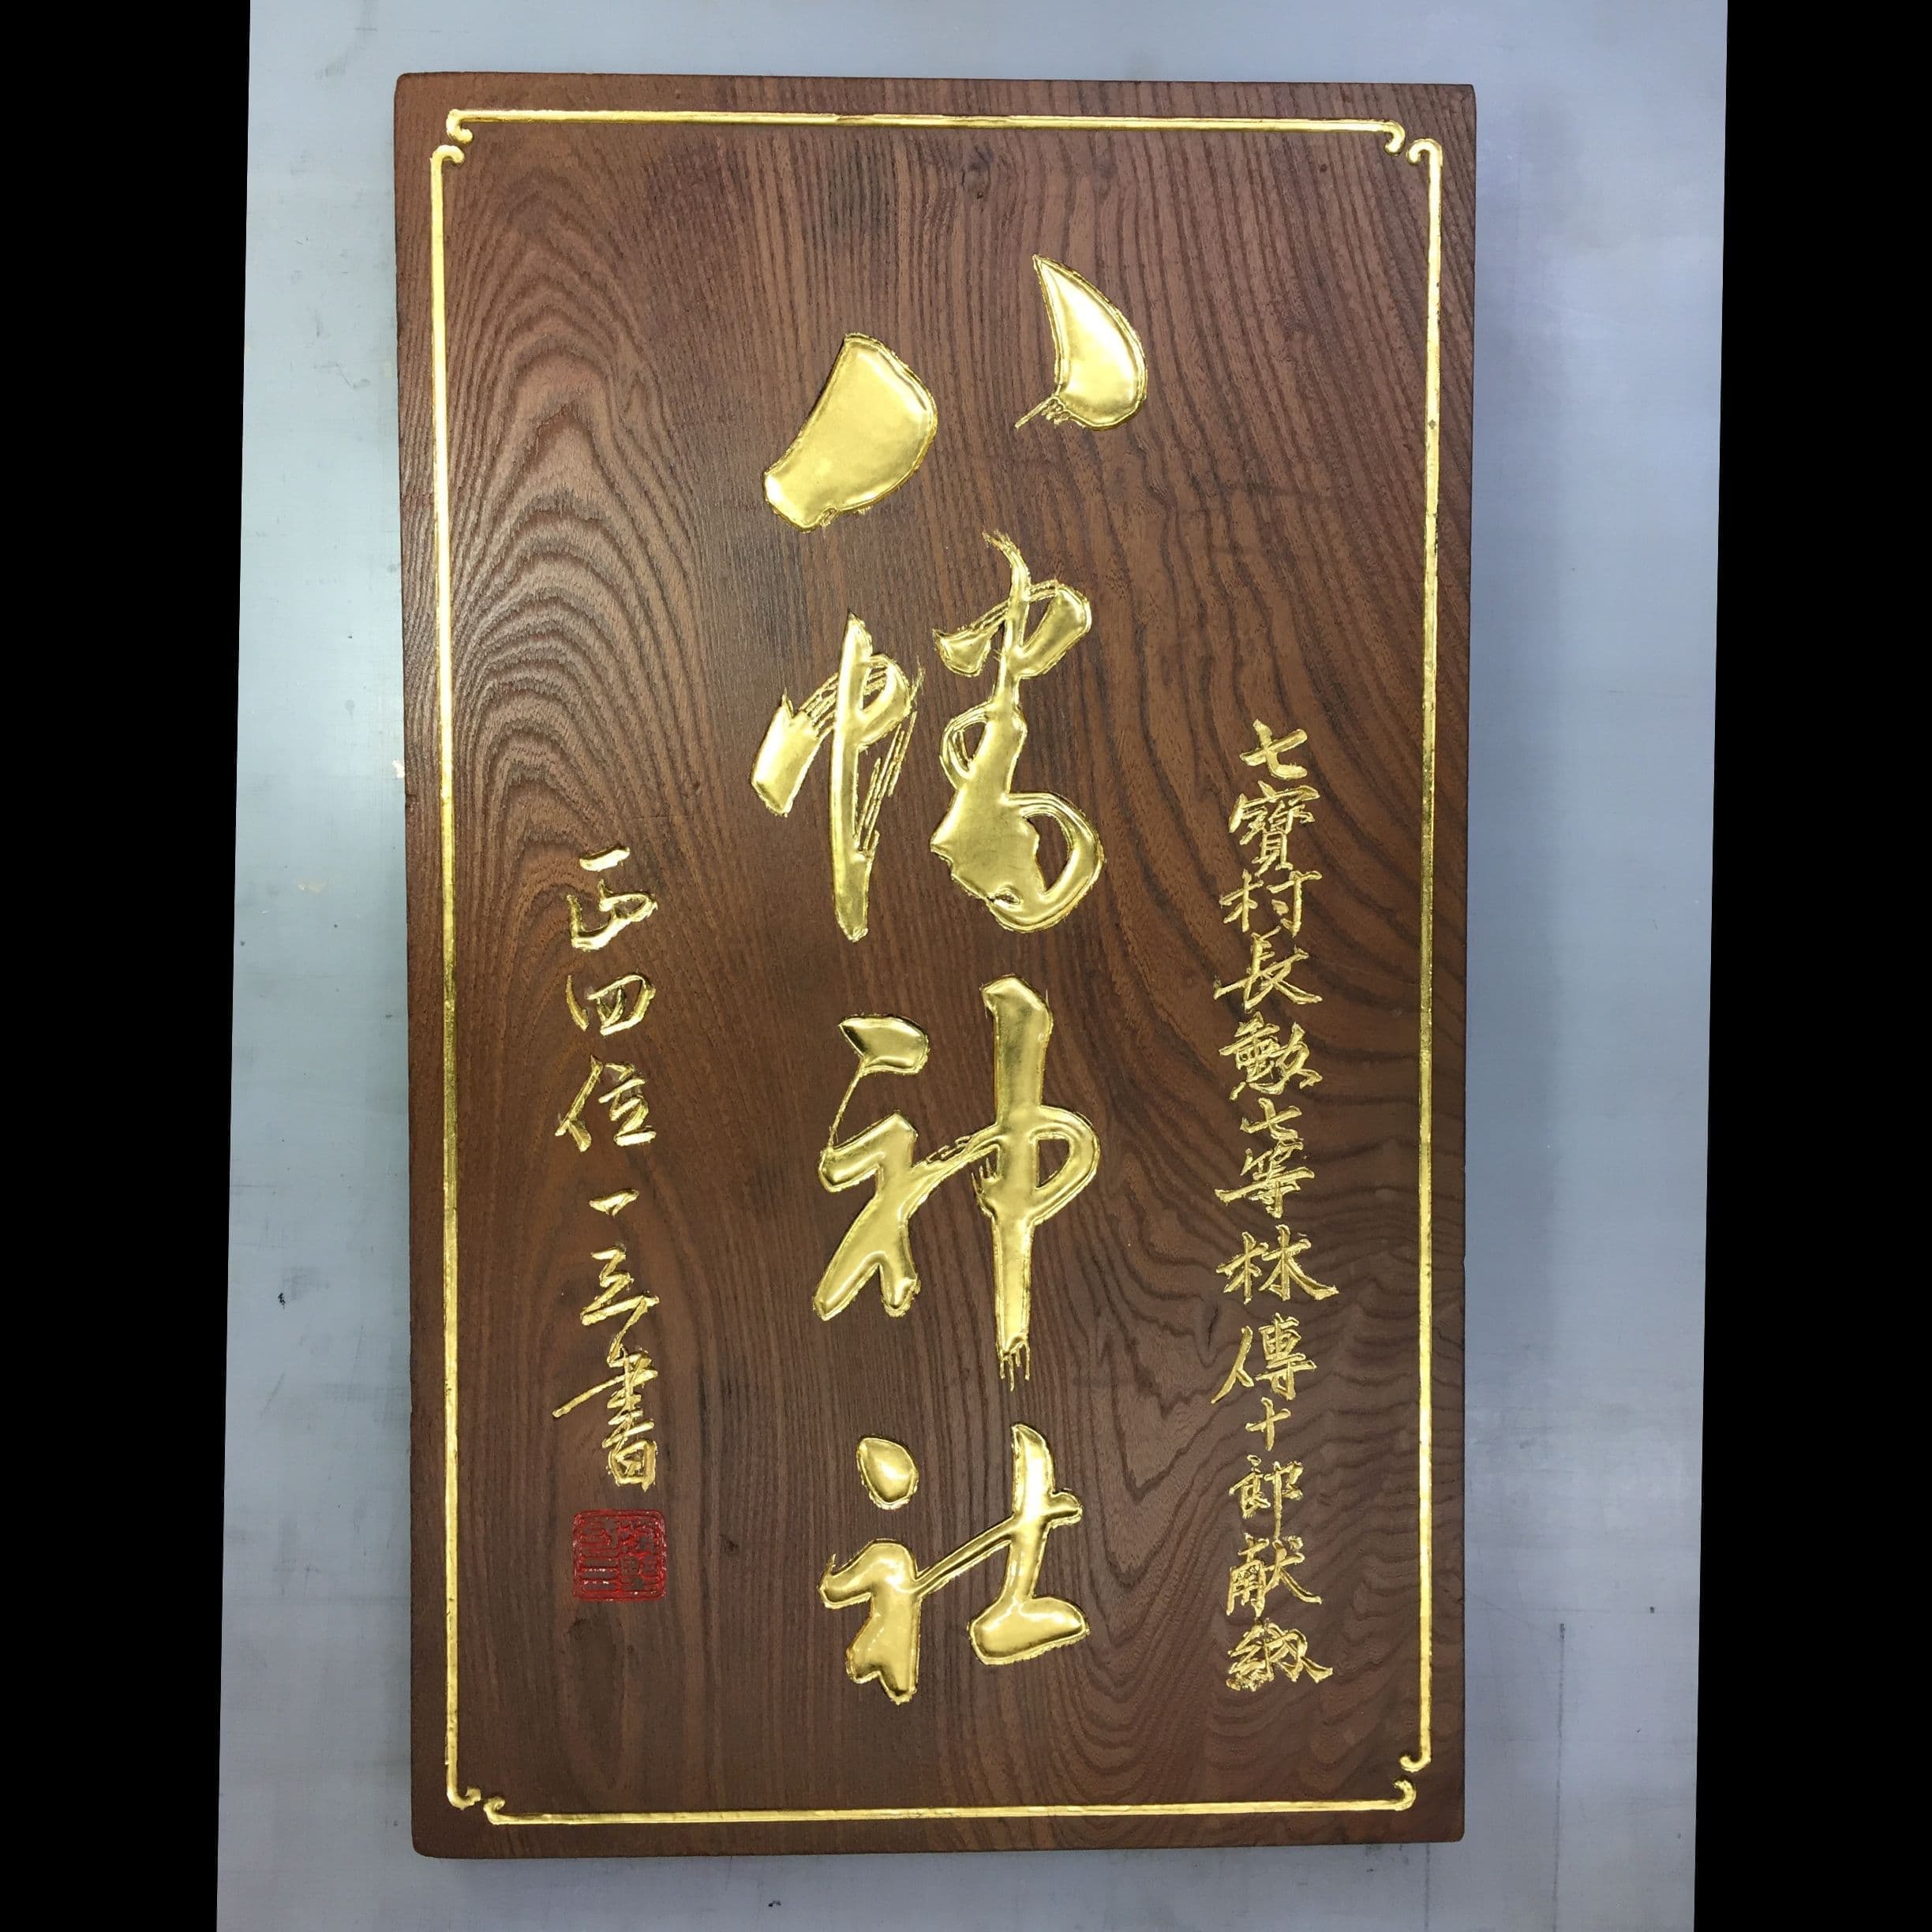 七寳村長勲七等林傳十郎献納
八幡神社
正四位一三書